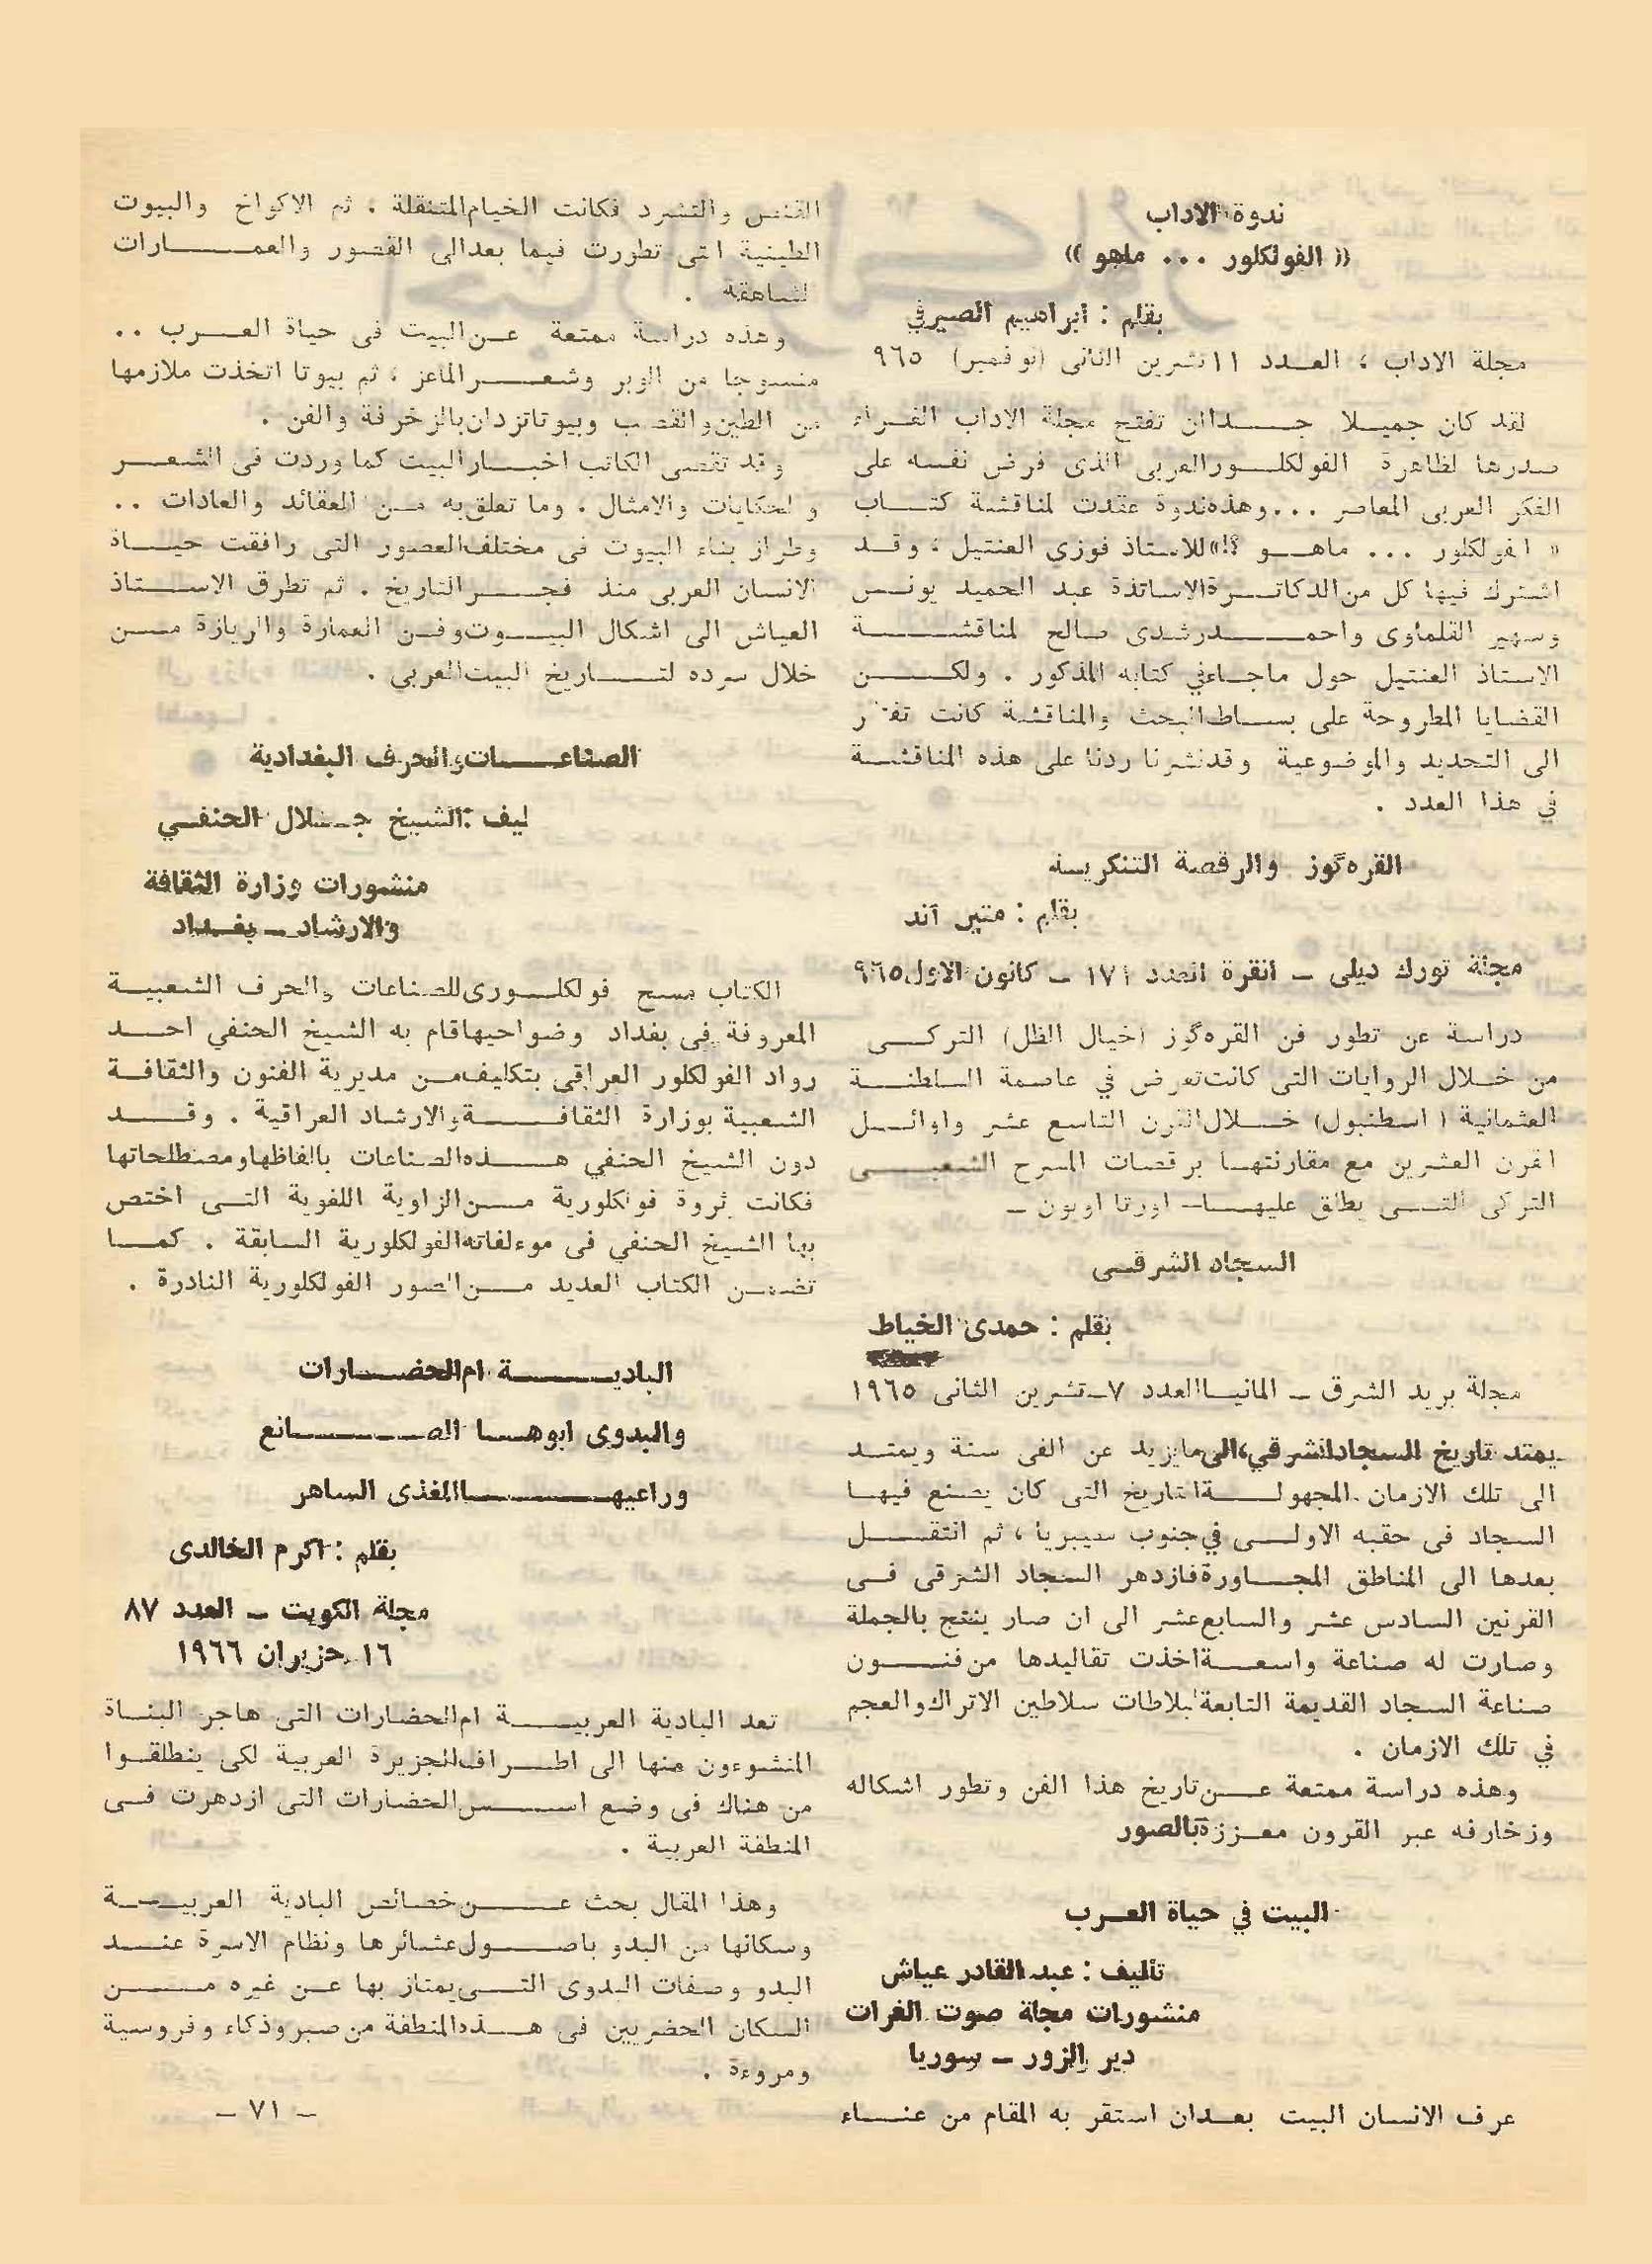 ندوة الاداب
« الفولكلور ... ماهو »
بقلم : ابراهيم الصيرفي
مجلة الاداب ، العدد ١١ تشرين الثانى (نوفمبر) ٩٦٥
لقد كان جميلا جدا ان تفتح مجلة الاداب الغراء
صدرها لظاهرة الفولكلور العربى الذى فرض نفسه على
الفكر العربى المعاصر ... وهذه ندوة عقدت لمناقشة كتاب
« الفولكلور ... ماهو ؟! » للاستاذ فوزى العنتيل ، وقد
اشترك فيها كل من الدكاترة الاساتذة عبد الحميد يونس
وسهير القلماوى واحمد رشدى صالح لمناقشة
الاستاذ العنتيل حول ماجاء في كتابه المذكور . ولكن
القضايا المطروحة على بساط البحث والمناقشة كانت تفتقر
الى التحديد والموضوعية وقد نشرنا ردنا على هذه المناقشة
في هذا العدد .
القره گوز والرقصة التنكريه
بقلم : متين آند
مجلة تورك ديلى - انقرة العدد ١٧١ - كانون الاول ٩٦٥
دراسة عن تطور فن القره گوز (خيال الظل) التركى
من خلال الروايات التى كانت تعرض في عاصمة السلطنة
العثمانية ( اسطنبول) خلال القرن التاسع عشر واوائل
القرن العشرين مع مقارنتها برقصات المسرح الشعبى
التركى التى يطلق عليها - اورتا اويون -
السجاد الشرقى
بقلم : حمدى الخياط
مجلة بريد الشرق - المانيا العدد ٧ - تشرين الثانى ١٩٦٥
يمتد تاريخ السجاد الشرقي ، الى مايزيد عن الفى سنة ويمتد
الى تلك الازمان المجهولة التاريخ التى كان يصنع فيها
السجاد فى حقبه الاولى في جنوب سيبريا ، ثم انتقل
بعدها الى المناطق المجاورة فازدهر السجاد الشرقى فى
القرنين السادس عشر والسابع عشر الى ان صار ينتج بالجملة
وصارت له صناعة واسعة اخذت تقاليدها من فنون
صناعة السجاد القديمة التابعة لبلاطات سلاطين الاتراك والعجم
في تلك الازمان .
وهذه دراسة ممتعة عن تاريخ هذا الفن وتطور اشكاله
وزخارفه عبر القرون معززة بالصور
البيت في حياة العرب
تأليف : عبد القادر عياش
منشورات مجلة صوت الفرات
دير الزور - سوريا
عرف الانسان البيت بعد ان استقر به المقام من عناء
القنص والتشرد فكانت الخيام المتنقلة . ثم الاكواخ والبيوت
الطينية التى تطورت فيما بعد الى القصور والعمارات
الشاهقة .
وهذه دراسة ممتعة عن البيت فى حياة العرب ..
منسوجا من الوبر وشعر الماعز ، ثم بيوتا اتخذت ملازمها
من الطين والقصب وبيوتا تزدان بالزخرفة والفن .
وقد تقصى الكاتب اخبار البيت كما وردت فى الشعر
والحكايات والامثال . وما تعلق به من العقائد والعادات ..
وطراز بناء البيوت فى مختلف العصور التى رافقت حياة
الانسان العربى منذ فجر التاريخ . ثم تطرق الاستاذ
العياش الى اشكال البيوت وفن العمارة والريازة من
خلال سرده لتاريخ البيت العربى .
الصناعات والحرف البغدادية
ليف : الشيخ جلال الحنفي
منشورات وزارة الثقافة
والارشاد - بغداد
الكتاب مسح فولكلورى للصناعات والحرف الشعبية
المعروفة فى بغداد وضواحيها قام به الشيخ الحنفي احد
رواد الفولكلور العراقى بتكليف من مديرية الفنون والثقافة
الشعبية بوزارة الثقافة والارشاد العراقية . وقد
دون الشيخ الحنفي هذه الصناعات بالفاظها ومصطلحاتها
فكانت ثروة فولكلورية من الزاوية اللغوية التى اختص
بها الشيخ الحنفي فى موءلفاته الفولكلورية السابقة . كما
تضمن الكتاب العديد من الصور الفولكلورية النادرة .
البادية ام الحضارات
والبدوى ابوها الصانع
وراعيها المغذى الساهر
بقلم : اكرم الخالدى
مجلة الكويت - العدد ٨٧
١٦ حزيران ١٩٦٦
تعد البادية العربية ام الحضارات التى هاجر البناة
المنشوءون منها الى اطراف الجزيرة العربية لكى ينطلقوا
من هناك فى وضع اسس الحضارات التى ازدهرت فى
المنطقة العربية .
وهذا المقال بحث عن خصائص البادية العربية
وسكانها من البدو باصول عشائرها ونظام الاسرة عند
البدو وصفات البدوى التى يمتاز بها عن غيره من
السكان الحضريين فى هذه المنطقة من صبر وذكاء وفروسية
ومروءة .
- ٧١ -